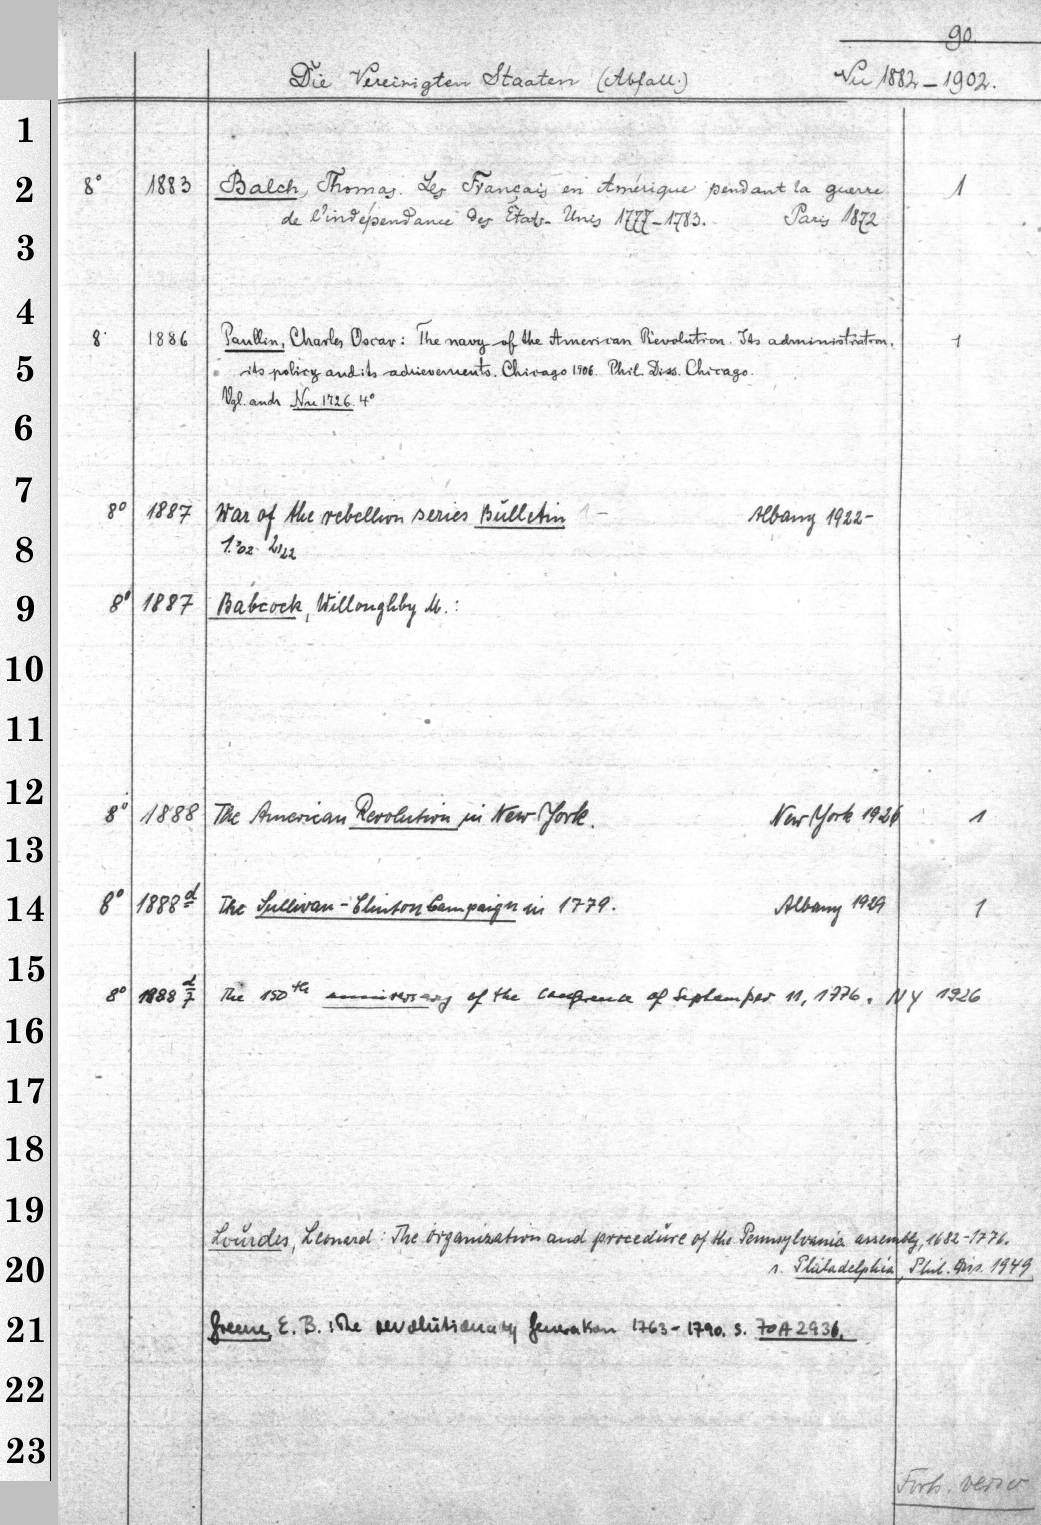 90.
Die Vereinigten Staaten (Abfall.) Nu 1882 – 1902.
1
2
3
4
5
6
7
8
9
10
11
12
13
14
15
16
17
18
19
20
21
22
23
8° 1883 Balch, Thomas. Les Français en Amérique pendant la guerre 1
de l'indépendance des États-Unis 1777–1783. Paris 1872
8° 1886 Paullin, Charles Oscar: The navy of the American Revolution. Its administration, 1
its policy and its achievements. Chicago 1906. Phil. Diss. Chicago.
Vgl. auch Nu 1726. 4°
8° 1887 War of the rebellion series Bulletin 1 – Albany 1922–
8° 1887 Babcock, Willoughby M.:
8° 1888 The American Revolution in New York. New York 1926 1
8° 1888 d The Sullivan-Clinton Campaign in 1779. Albany 1929 1
8° 1888 d/7 The 150th anniversary of the conference of September 11, 1776. NY 1926
Lourdes, Leonard: The organization and procedure of the Pennsylvania assembly, 1682-1776.
s. Philadelphia, Phil. Diss. 1949
Greene, E. B.: The revolutionary generation 1763-1790. s. 70 A 2936.
Forts. verso